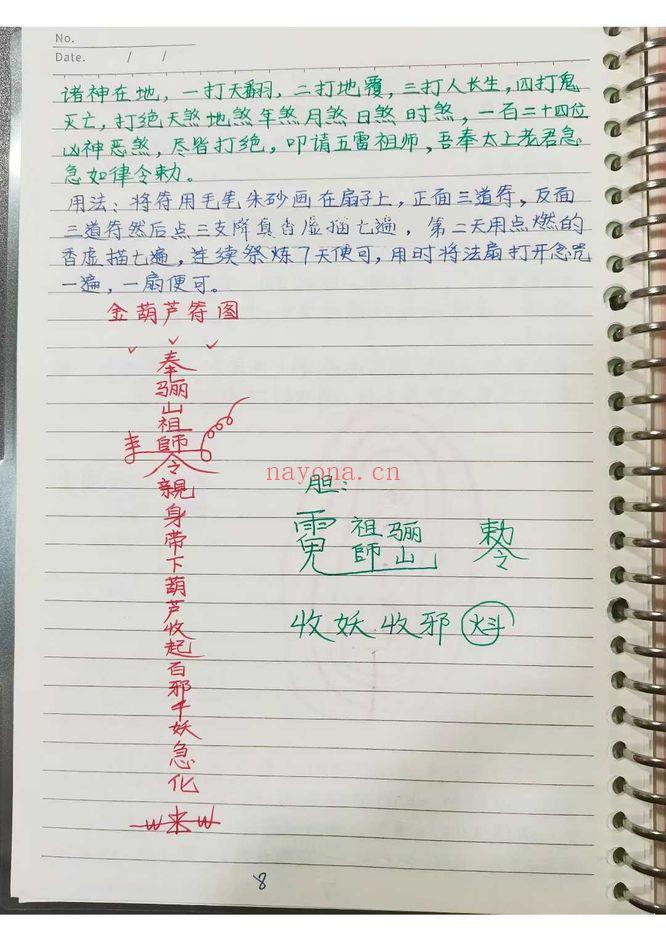 No.
Date. / /
诸神在地，一打天翻，二打地覆，三打人长生，四打鬼
灭亡，打绝天煞地煞年煞月煞日煞时煞，一百二十四位
凶神恶煞，尽皆打绝，叩请五雷祖师，吾奉太上老君急
急如律令勅。
用法：将符用毛笔朱砂画在扇子上，正面三道符，反面
三道符然后点三支降真香虚描七遍，第二天用点燃的
香虚描七遍，连续祭炼7天便可，用时将法扇打开念咒
一遍，一扇便可。
金葫芦符图
奉骊山祖師令親身带下葫芦收起百邪千妖急化
nayona.cn
胆：
祖師 骊山 勅令
收妖收邪
8